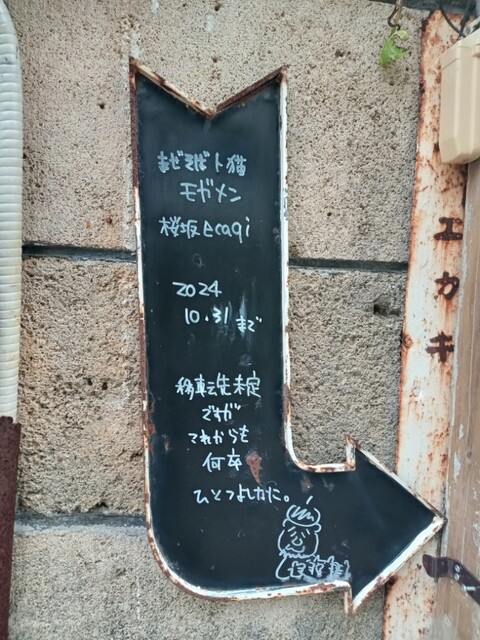 まぜそばト猫
モガメン
桜坂ecagi
2024
10.31まで
移転先未定
ですが
これからも
何卒
ひとつよしなに。
エカキ